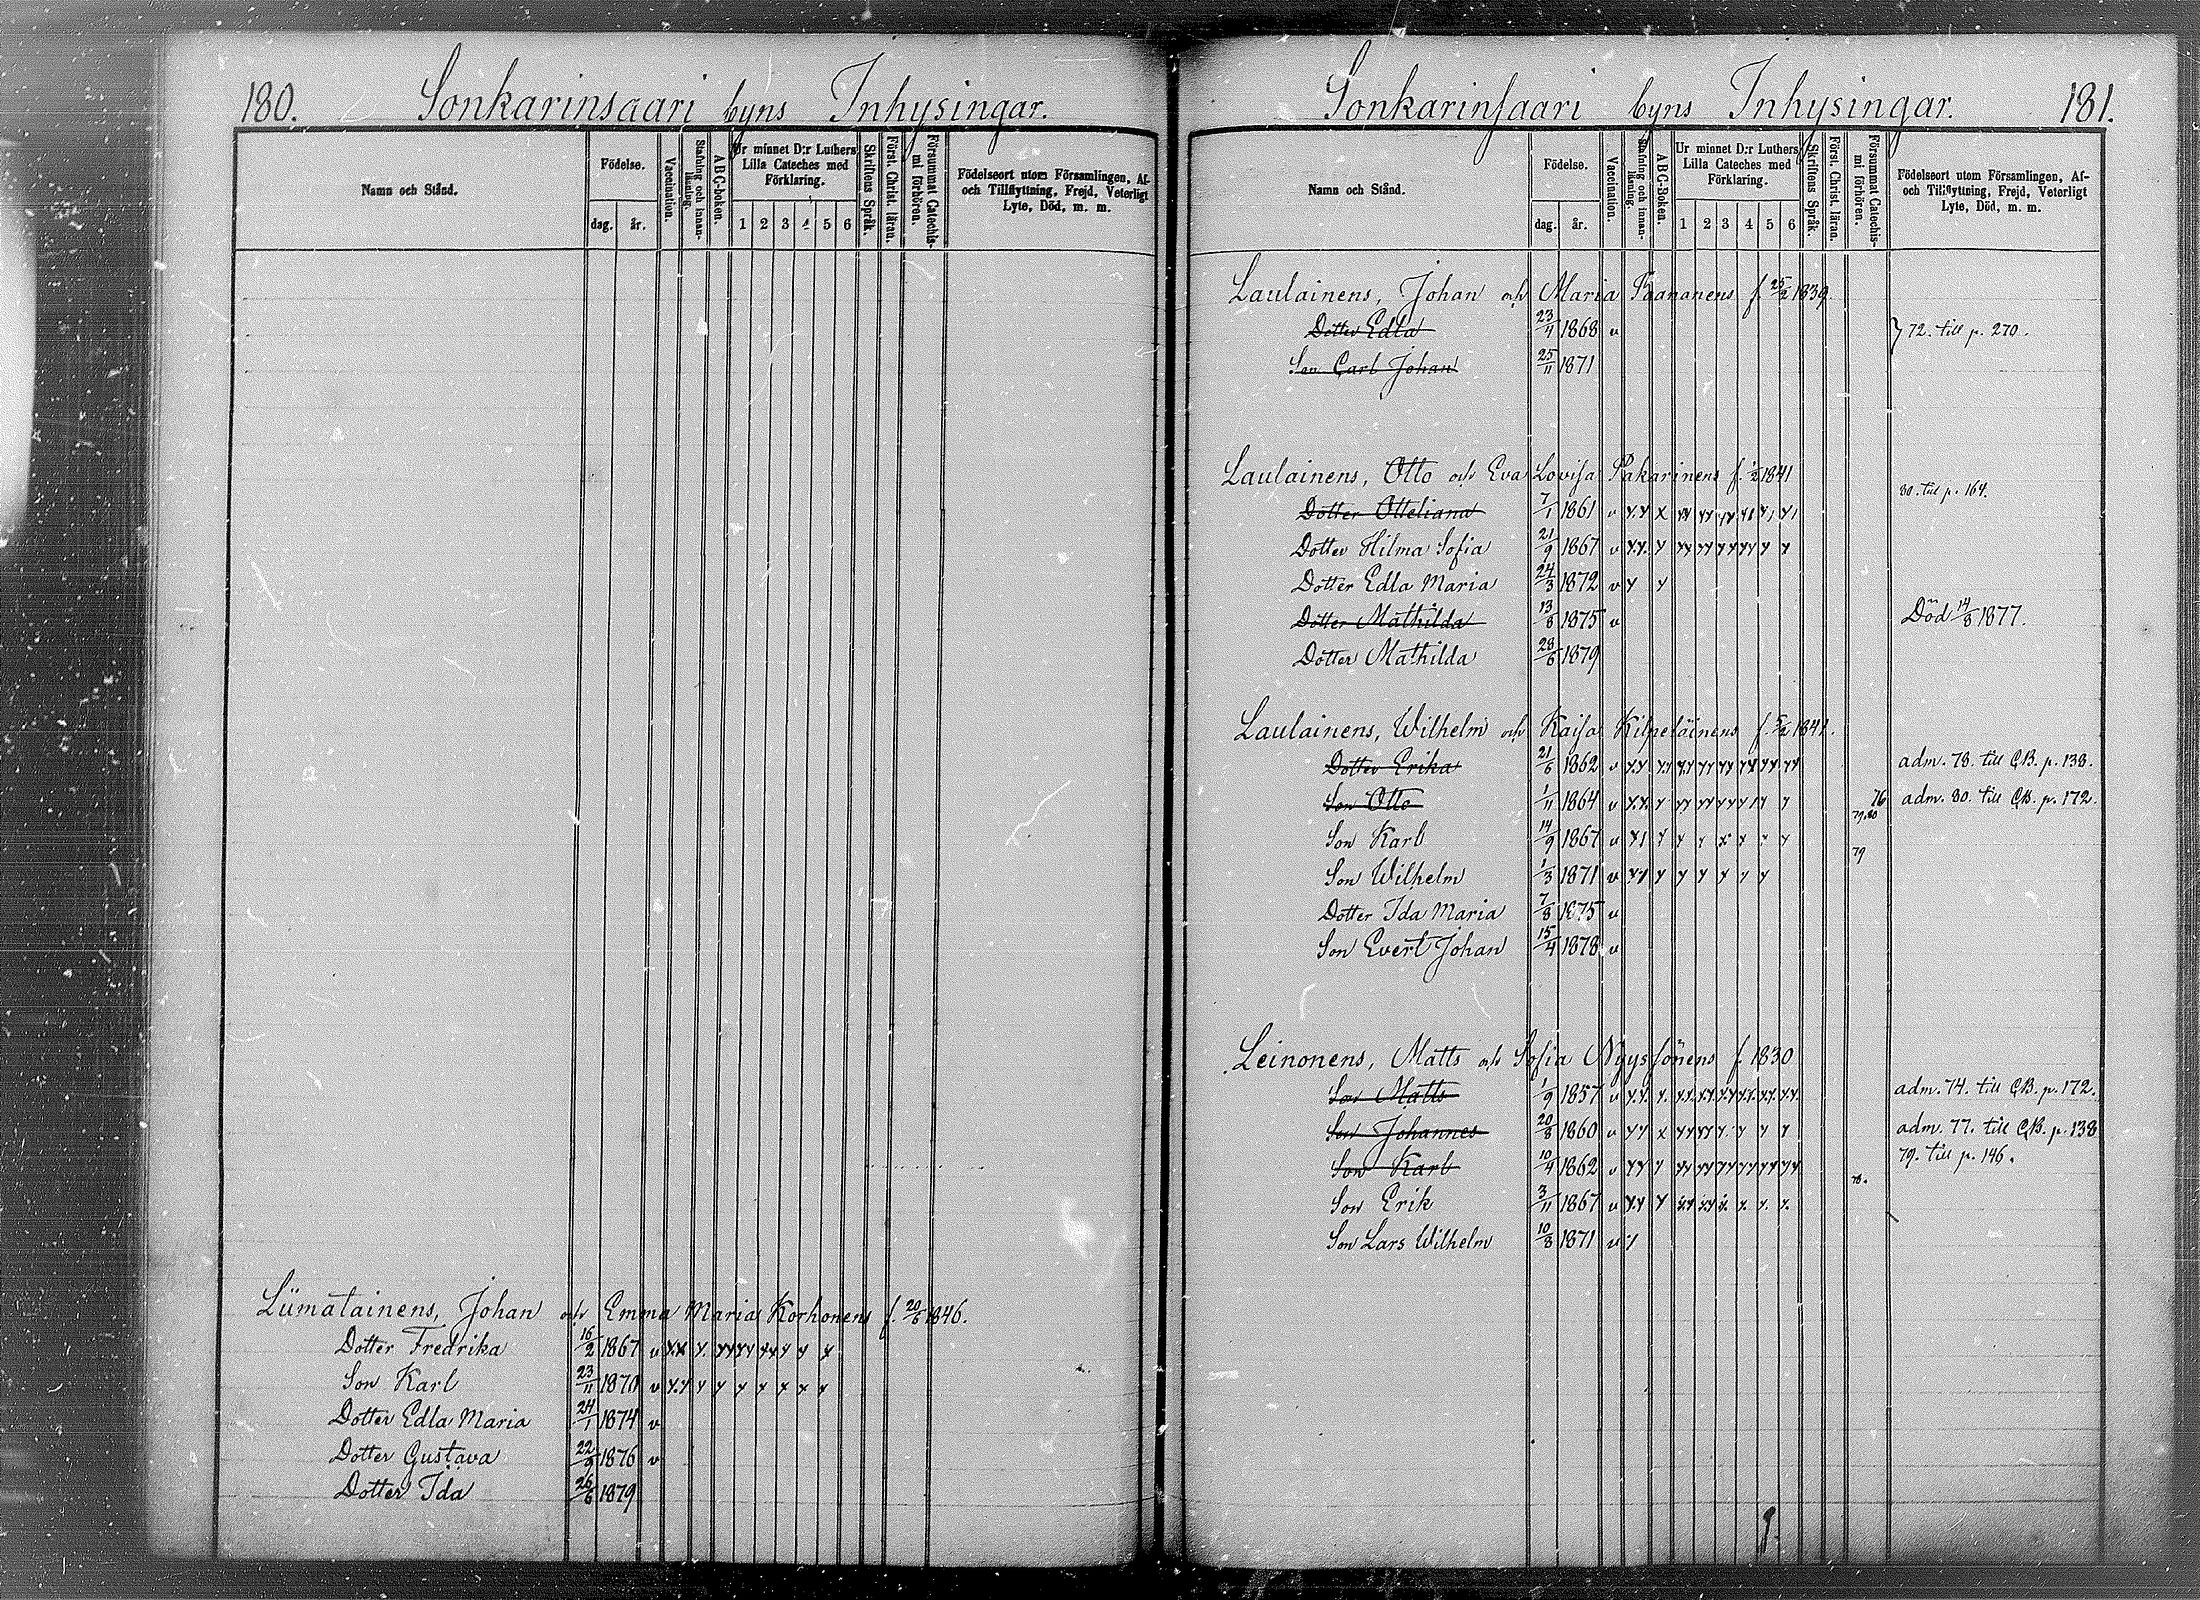 180. Sonkarinsaari byns Inhysingar.
Namn och Stånd. Födelse. dag. år. Vaccination. Stafning och innanläsning. ABC-boken. Ur minnet D:r Luthers Lilla Cateches med Förklaring. 1 2 3 4 5 6 Skriftens Språk. Först. Christ. läran. Försummat Catechismi förhören. Födelseort utom Församlingen, Af- och Tillflyttning, Frejd, Veterligt Lyte, Död, m. m.
Liimatainens, Johan och Emma Maria Korhonens f. 20/6 1846.
Dotter Fredrika 16/2 1867 v
Son Karl 23/11 1870 v
Dotter Edla Maria 24/1 1874 v
Dotter Gustava 22/9 1876 v
Dotter Ida 26/6 1879
Sonkarinsaari byns Inhysingar. 181.
Namn och Stånd. Födelse. dag. år. Vaccination. Stafning och innanläsning. ABC-boken. Ur minnet D:r Luthers Lilla Cateches med Förklaring. 1 2 3 4 5 6 Skriftens Språk. Först. Christ. läran. Försummat Catechismi förhören. Födelseort utom Församlingen, Af- och Tillflyttning, Frejd, Veterligt Lyte, Död, m. m.
Laulainens, Johan och Maria Paananens f. 25/2 1839.
Dotter Edla 23/4 1868 v } 72. till p. 270.
Son Carl Johan 25/11 1871
Laulainens, Otto och Eva Lovisa Pakarinens f. 1/2 1841
Dotter Otteliana 7/1 1861 v 80. till p. 164.
Dotter Hilma Sofia 21/9 1867 v
Dotter Edla Maria 24/3 1872 v
Dotter Mathilda 13/8 1875 v Död 14/8 1877.
Dotter Mathilda 28/6 1879
Laulainens, Wilhelm och Kaisa Kilpeläinens f. 5/2 1841.
Dotter Erika 21/6 1862 v adm. 78. till CB. p. 138.
Son Otto 1/11 1864 v 76 adm. 80. till CB. p. 172.
79.80
Son Karl 14/9 1867 v 79
Son Wilhelm 1/3 1871 v
Dotter Ida Maria 7/8 1875 v
Son Evert Johan 15/4 1878 v
Leinonens, Matts och Sofia Nyyssönens f. 1830
Son Matts 1/9 1857 v adm. 74. till CB. p. 172.
Son Johannes 20/8 1860 v adm. 77. till CB. p. 138
Son Karl 10/4 1862 v 79. till p. 146.
Son Erik 3/11 1867 v
Son Lars Wilhelm 10/8 1871 v